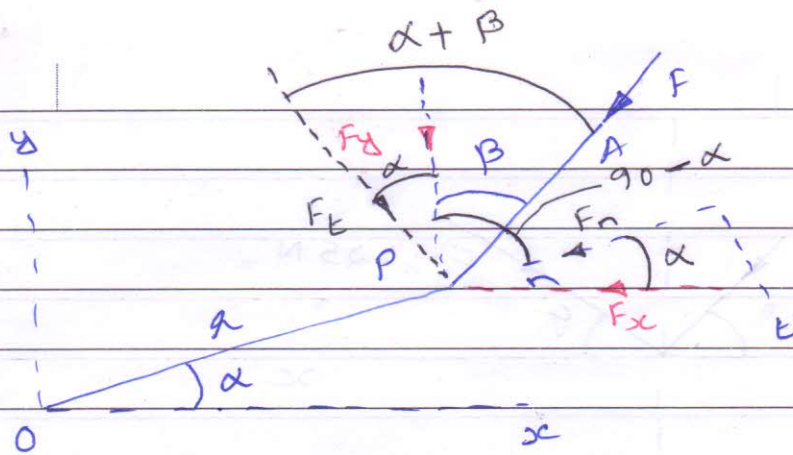 α + β
F
y
Fy
β
A
α
90 - α
Ft
Fn
P
n
α
Fx
t
r
α
O
x